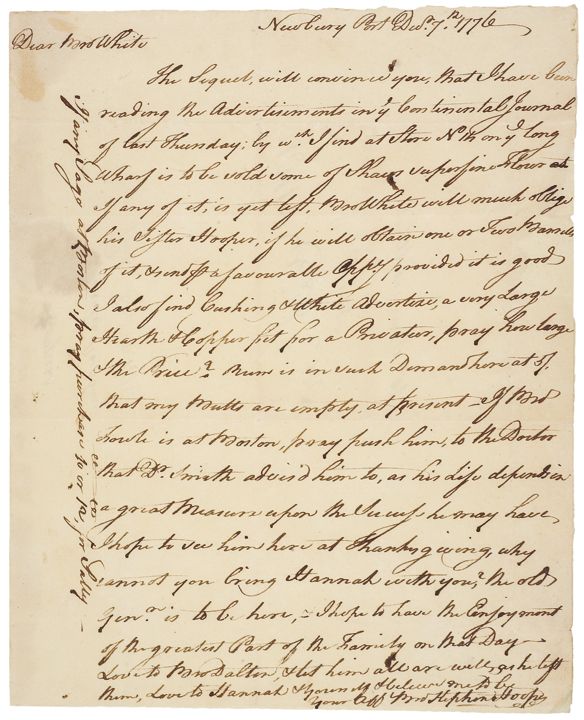 Newbury Port Decr. 7th. 1776
Dear Bro White
The Sequel, will convince you, that I have been
reading the Advertisements in ye Continental Journal
of last Thursday; by wch. I find at Store No 14 on ye long
Wharf is to be sold some of Shaws superfine Flour
If any of it, is yet left, Bro White will much oblige
his Sister Hooper, if he will obtain one or Two Barrels
of it, & send pr a favourable Oppty provided it is good
I also find, Cushing & White Advertize, a very Large
Hearth & Copper fit for a Privateer, pray how large
& the Price? Rum is in such Demand here at 5/.
that my Butts are empty, at present – If Bro
Fowle is at Boston, pray push him, to the Doctor
that Dr. Smith advis'd him to, as his Life depends in
a great Measure upon the Success he may have
I hope to see him here at Thanksgiving, why
cannot you bring Hannah with you? the old
Genn. is to be here, – I hope to have the Enjoyment
of the greatest Part of the Family on that Day –
Love to Bro Dalton, & let him all are well, as he left
them, Love to Hannah & yourself & believe me to be
Your Aff Bro Stephen Hooper
If any Sago at Boston, pray purchase 10 or 12, for Sally –